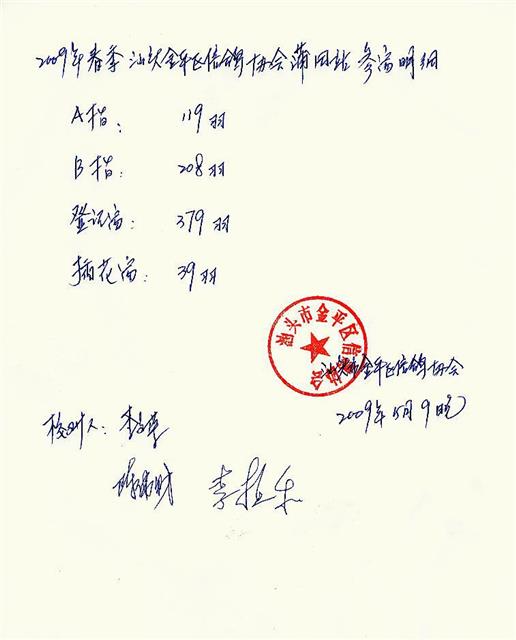 2009年春季汕头金平区信鸽协会莆田站参赛明细
A指: 119羽
B指: 208羽
登记赛: 379羽
插花赛: 39羽
汕头市金平区信鸽协会
汕头市金平区信鸽协会
2009年5月9日
校对人: 李
李植